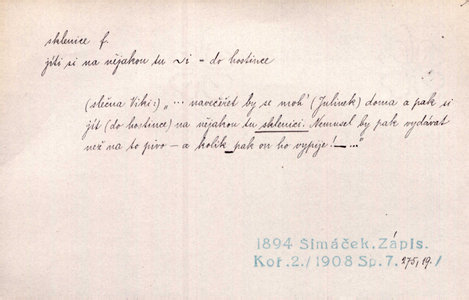 sklenice f.
jíti si na nějakou tu ~i - do hostince
(slečna Viki:) „... navečeřet by se moh' (Julínek) doma a pak si
jít (do hostince) na nějakou tu sklenici. Nemusel by pak vydávat
než na to pivo – a kolik pak on ho vypije! – ..."
1894 Šimáček. Zápis.
Koř.2./1908 Sp.7. 275,19./